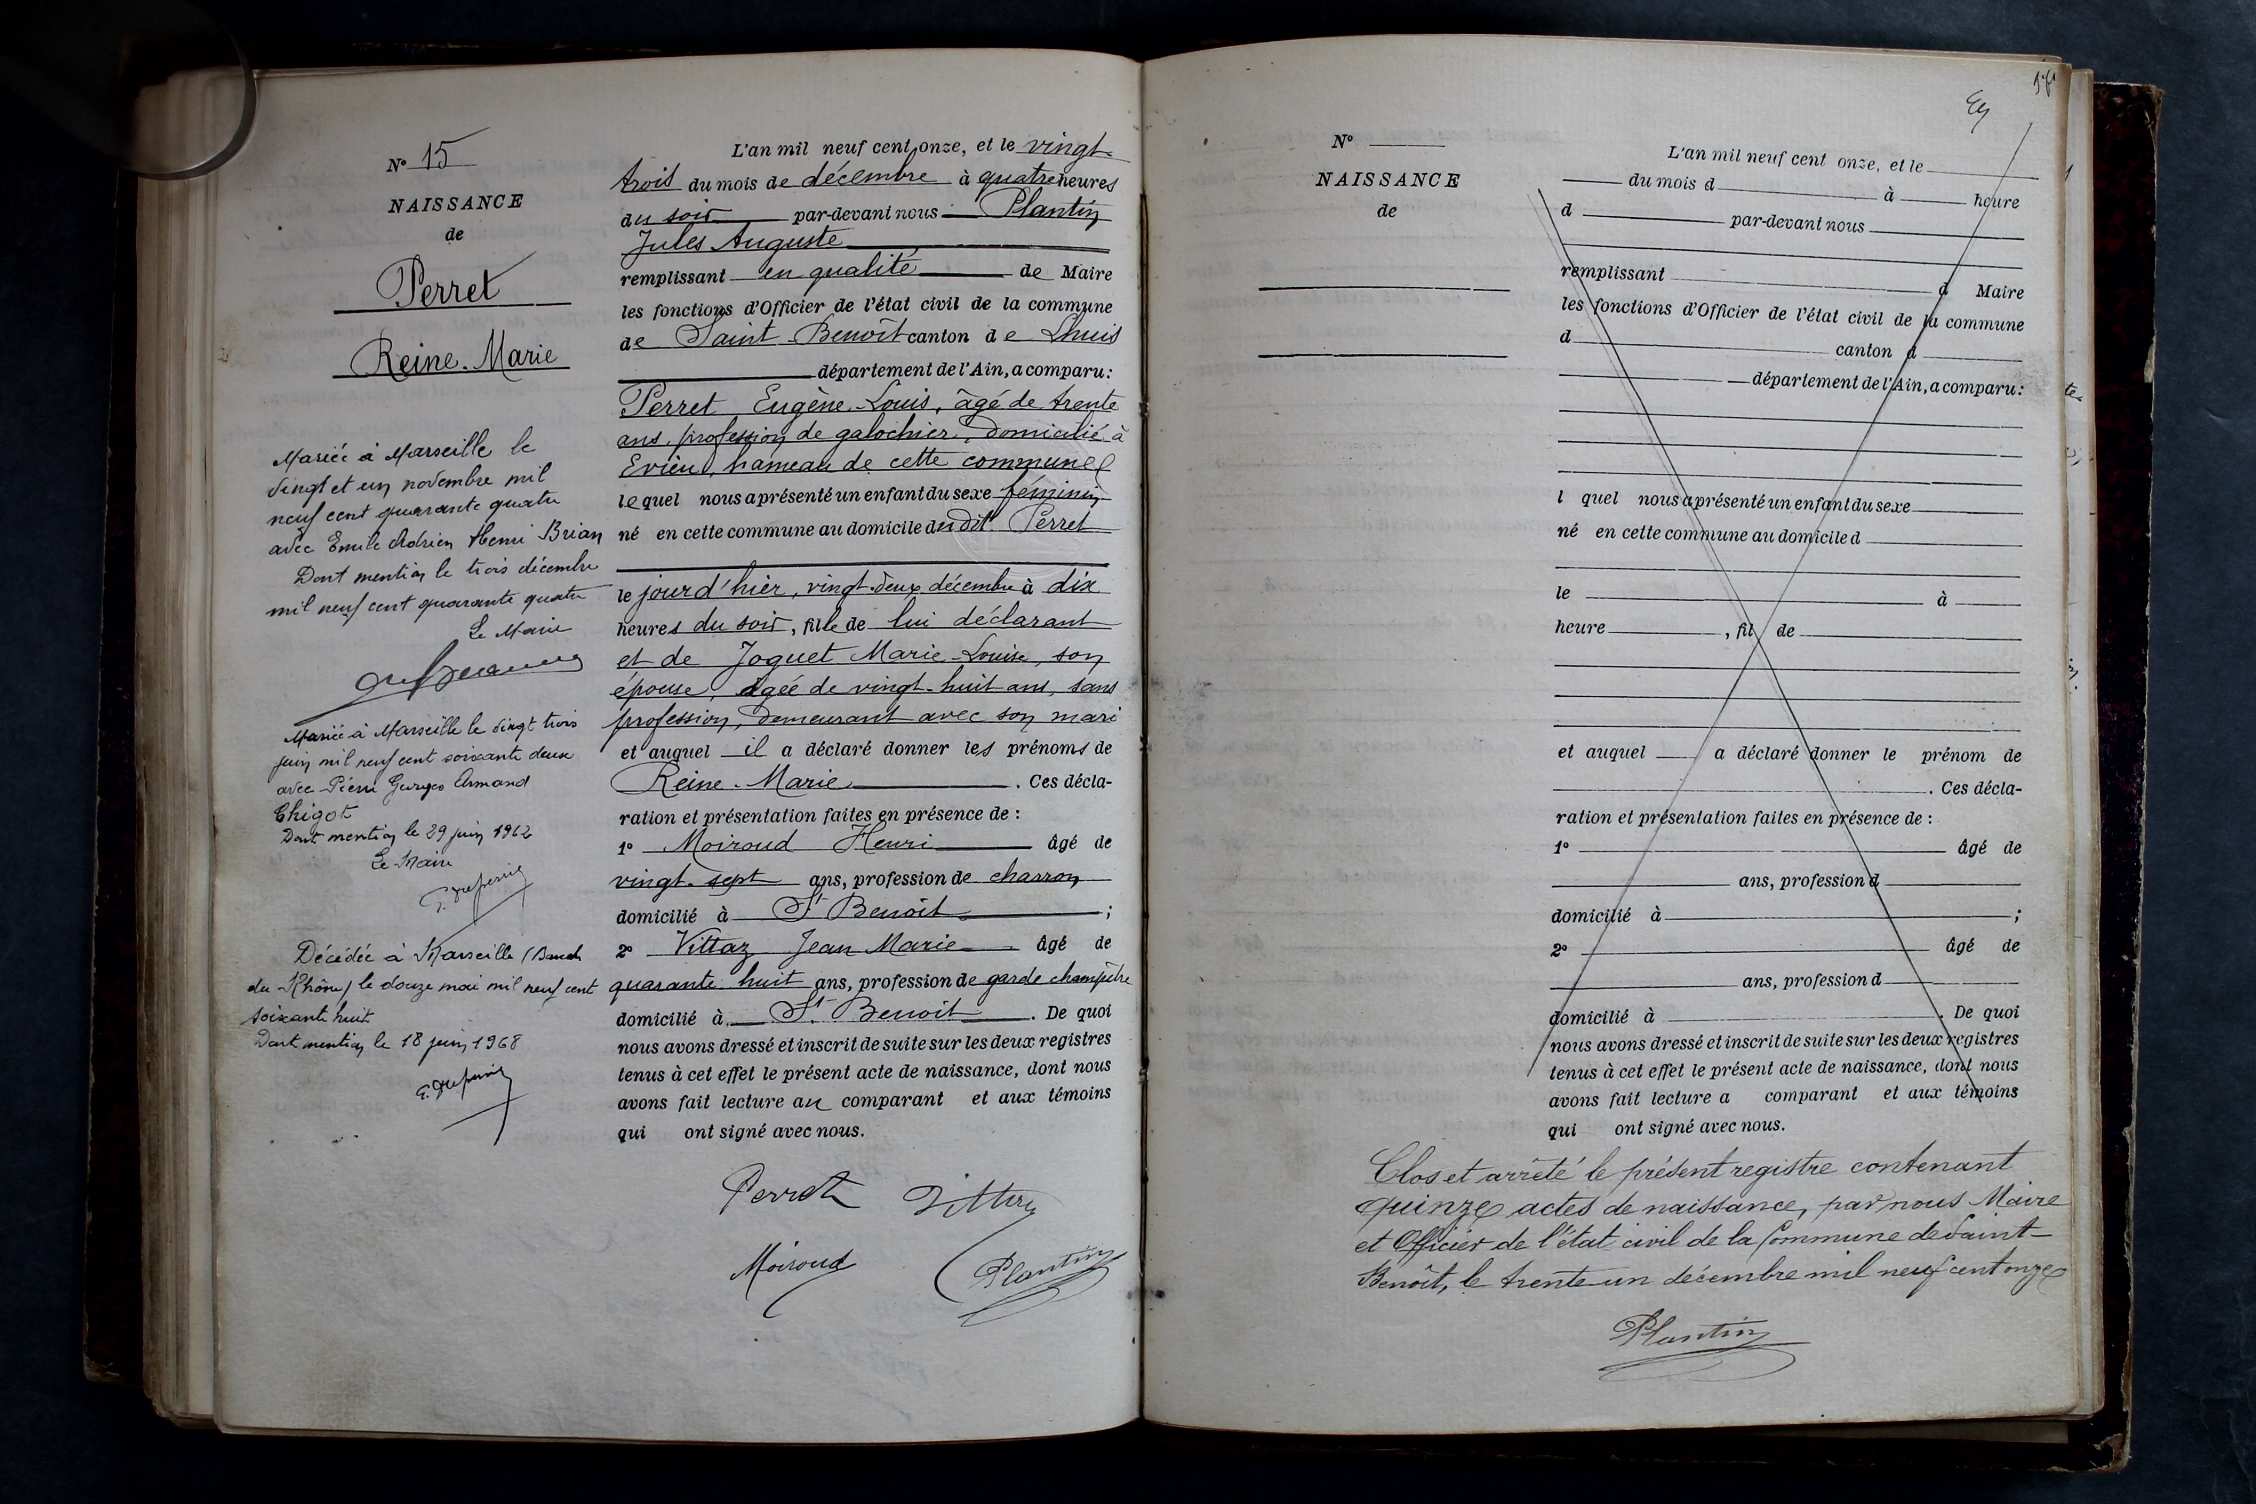 N° 15
NAISSANCE
de
Perret
Reine-Marie
Mariée à Marseille le
vingt et un novembre mil
neuf cent quarante quatre
avec Emile Adrien Henri Brian
Dont mention le trois décembre
mil neuf cent quarante quatre
Le Maire
Mariée à Marseille le vingt trois
juin mil neuf cent soixante deux
avec Pierre Georges Armand
Chigot
Dont mention le 29 juin 1962
Le Maire
Décédée à Marseille (Bouch
du Rhône) le douze mai mil neuf cent
soixante huit
Dont mention le 18 juin 1968
L'an mil neuf cent onze, et le vingt-
trois du mois de décembre à quatre heures
du soir par-devant nous Plantin
Jules Auguste
remplissant en qualité de Maire
les fonctions d'Officier de l'état civil de la commune
de Saint-Benoît canton de Lhuis
département de l'Ain, a comparu:
Perret Eugène-Louis, âgé de trente
ans, profession de galochier, domicilié à
Evieu, hameau de cette commune
lequel nous a présenté un enfant du sexe féminin
né en cette commune au domicile dudit Perret
le jour d'hier, vingt-deux décembre à dix
heures du soir, fille de lui déclarant
et de Joguet Marie-Louise, son
épouse, agée de vingt-huit ans, sans
profession, demeurant avec son mari
et auquel il a déclaré donner les prénoms de
Reine-Marie. Ces décla-
ration et présentation faites en présence de :
1° Moiroud Henri âgé de
vingt-sept ans, profession de charron
domicilié à St Benoît ;
2° Vittaz Jean Marie âgé de
quarante huit ans, profession de garde champêtre
domicilié à St. Benoît. De quoi
nous avons dressé et inscrit de suite sur les deux registres
tenus à cet effet le présent acte de naissance, dont nous
avons fait lecture au comparant et aux témoins
qui ont signé avec nous.
Perret
Moiroud Plantin
N°
NAISSANCE
de
L'an mil neuf cent onze, et le
du mois d à heure
d par-devant nous
remplissant d Maire
les fonctions d'Officier de l'état civil de la commune
d canton d
département de l'Ain, a comparu:
l quel nous a présenté un enfant du sexe
né en cette commune au domicile d
le à
heure , fil de
et auquel a déclaré donner le prénom de
. Ces décla-
ration et présentation faites en présence de :
1° âgé de
ans, profession d
domicilié à ;
2° âgé de
ans, profession d
domicilié à . De quoi
nous avons dressé et inscrit de suite sur les deux registres
tenus à cet effet le présent acte de naissance, dont nous
avons fait lecture a comparant et aux témoins
qui ont signé avec nous.
Clos et arrêté le présent registre contenant
quinze actes de naissance, par nous Maire
et Officier de l'état civil de la Commune de Saint-
Benoît, le trente-un décembre mil neuf cent onze
Plantin